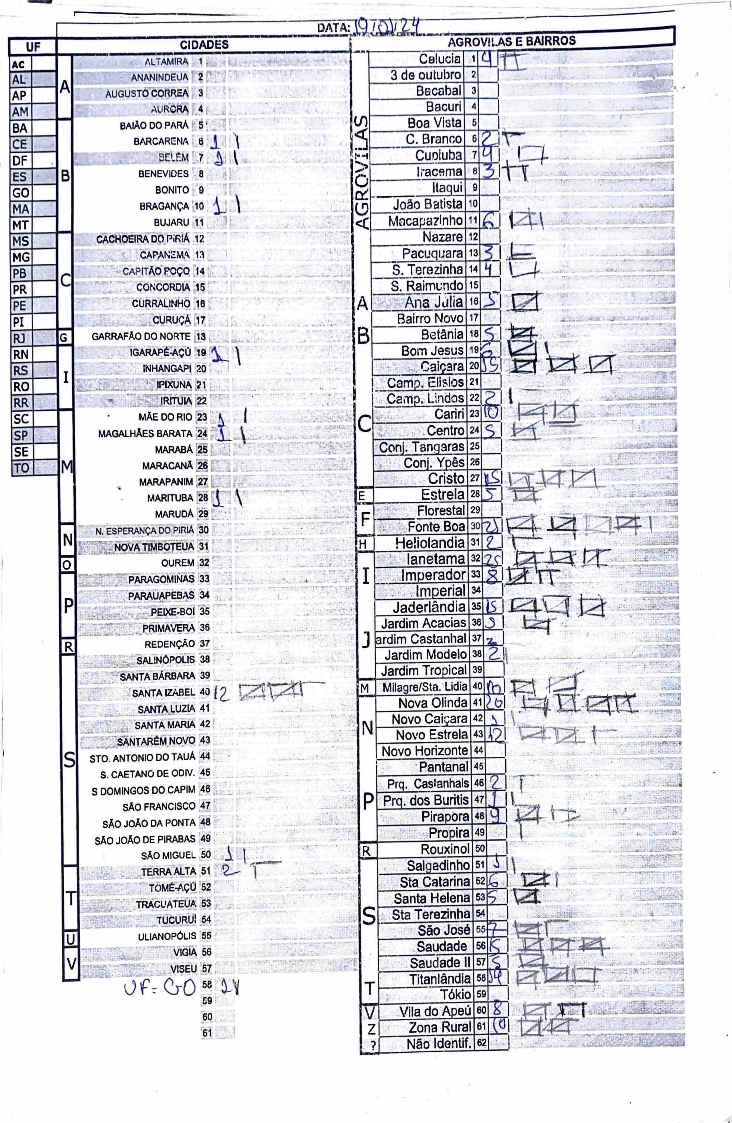 DATA: 19/01/24
UF CIDADES AGROVILAS E BAIRROS
AC
AL
AP
AM
BA
CE
DF
ES
GO
MA
MT
MS
MG
PB
PR
PE
PI
RJ
RN
RS
RO
RR
SC
SP
SE
TO
A
B
C
G
I
M
N
O
P
R
S
T
U
V
ALTAMIRA 1
ANANINDEUA 2
AUGUSTO CORREA 3
AURORA 4
BAIÃO DO PARÁ 5
BARCARENA 6 1
BELÉM 7 1
BENEVIDES 8
BONITO 9
BRAGANÇA 10 1
BUJARU 11
CACHOEIRA DO PIRIÁ 12
CAPANEMA 13
CAPITÃO POÇO 14
CONCORDIA 15
CURRALINHO 16
CURUÇÁ 17
GARRAFÃO DO NORTE 18
IGARAPÉ-AÇÚ 19 1
INHANGAPI 20
IPIXUNA 21
IRITUIA 22
MÃE DO RIO 23 1
MAGALHÃES BARATA 24 1
MARABÁ 25
MARACANÃ 26
MARAPANIM 27
MARITUBA 28 1
MARUDÁ 29
N. ESPERANÇA DO PIRIÁ 30
NOVA TIMBOTEUA 31
OUREM 32
PARAGOMINAS 33
PARAUAPEBAS 34
PEIXE-BOI 35
PRIMAVERA 36
REDENÇÃO 37
SALINÓPOLIS 38
SANTA BÁRBARA 39
SANTA IZABEL 40 12
SANTA LUZIA 41
SANTA MARIA 42
SANTARÉM NOVO 43
STO. ANTONIO DO TAUÁ 44
S. CAETANO DE ODIV. 45
S DOMINGOS DO CAPIM 46
SÃO FRANCISCO 47
SÃO JOÃO DA PONTA 48
SÃO JOÃO DE PIRABAS 49
SÃO MIGUEL 50 1
TERRA ALTA 51 2
TOMÉ-AÇÚ 52
TRACUATEUA 53
TUCURUÍ 54
ULIANOPÓLIS 55
VIGIA 56
VISEU 57
UF: GO 58 1
59
60
61
AGROVILAS
A
B
C
E
F
H
I
J
M
N
P
R
S
T
V
Z
?
Calucia 1 4
3 de outubro 2
Bacabal 3
Bacuri 4
Boa Vista 5
C. Branco 6 2
Cupiuba 7 4
Iracema 8 3
Itaqui 9
João Batista 10
Macapazinho 11 6
Nazare 12
Pacuquara 13 3
S. Terezinha 14 4
S. Raimundo 15
Ana Julia 16 5
Bairro Novo 17
Betânia 18 5
Bom Jesus 19 6
Caiçara 20 15
Camp. Elisios 21
Camp. Lindos 22 2
Cariri 23 10
Centro 24 5
Conj. Tangaras 25
Conj. Ypês 26
Cristo 27 15
Estrela 28 5
Florestal 29
Fonte Boa 30 21
Heliolandia 31 2
Ianetama 32
Imperador 33 8
Imperial 34
Jaderlândia 35 15
Jardim Acacias 36 5
ardim Castanhal 37 2
Jardim Modelo 38 2
Jardim Tropical 39
Milagre/Sta. Lidia 40 10
Nova Olinda 41
Novo Caiçara 42 1
Novo Estrela 43 12
Novo Horizonte 44
Pantanal 45
Prq. Castanhais 46 2
Prq. dos Buritis 47 1
Pirapora 48 9
Propira 49
Rouxinol 50
Salgadinho 51 1
Sta Catarina 52 6
Santa Helena 53 5
Sta Terezinha 54
São José 55 7
Saudade 56 15
Saudade II 57 5
Titanlândia 58 19
Tókio 59
Vila do Apeú 60 8
Zona Rural 61 10
Não Identif. 62